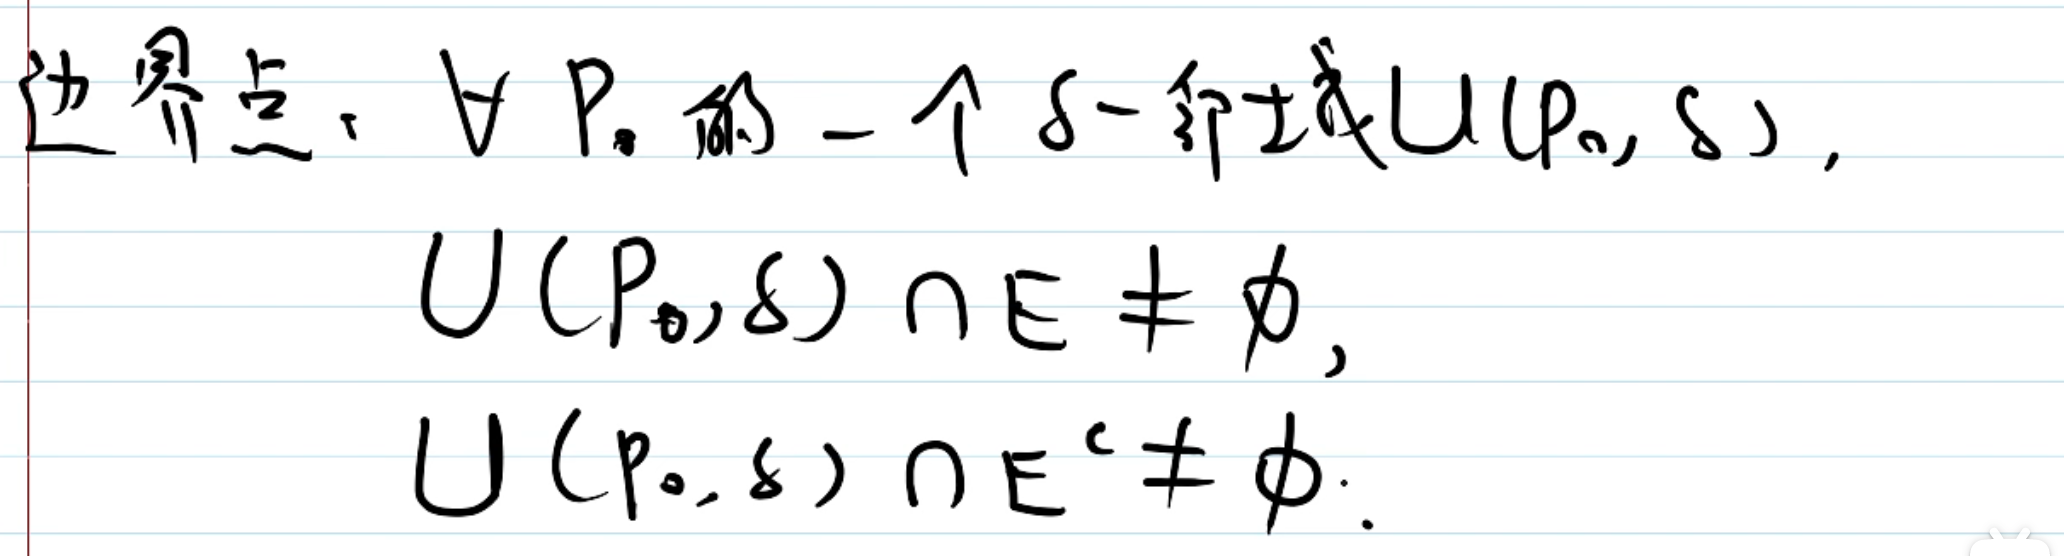 边界点. ∀ P₀ 的一个 δ-邻域 U(P₀, δ),
U(P₀, δ) ∩ E ≠ ∅,
U(P₀, δ) ∩ Eᶜ ≠ ∅.